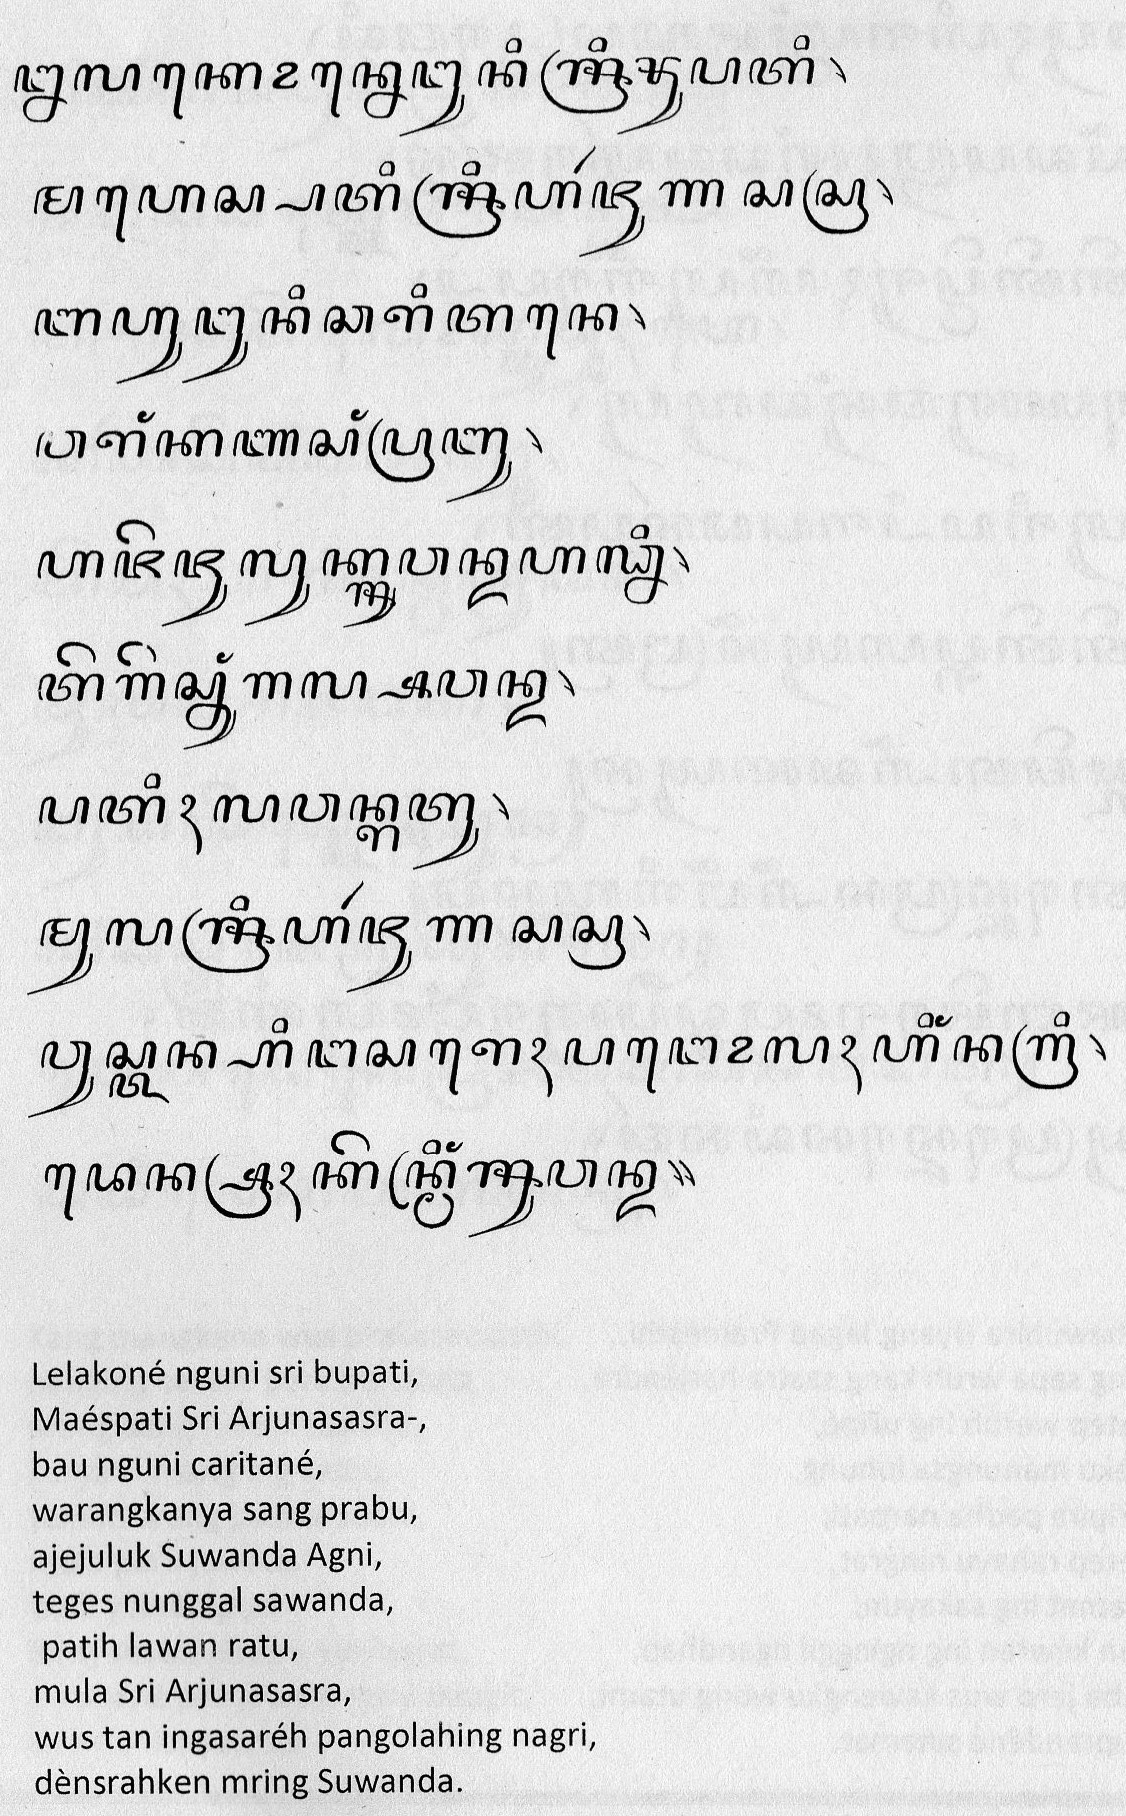 ꦊꦭꦏꦺꦴꦤ꧀ꦤꦺꦔꦸꦤꦶꦯꦿꦶꦨꦸꦥꦠꦶ꧈
ꦩꦲꦺꦱ꧀ꦥꦠꦶꦯꦿꦶꦲꦂꦗꦸꦤꦱꦱꦿ꧈
ꦧꦲꦸꦔꦸꦤꦶꦕꦫꦶꦠꦤꦺ꧈
ꦮꦫꦁꦏꦚꦱꦁꦥꦿꦧꦸ꧈
ꦲꦗꦼꦗꦸꦭꦸꦏ꧀ꦯꦸꦮꦤ꧀ꦢꦲꦒ꧀ꦤꦶ꧈
ꦠꦼꦒꦼꦱ꧀ꦤꦸꦁꦒꦭ꧀ꦱꦮꦤ꧀ꦢ꧈
ꦥꦠꦶꦃꦭꦮꦤ꧀ꦫꦠꦸ꧈
ꦩꦸꦭꦯꦿꦶꦲꦂꦗꦸꦤꦱꦱꦿ꧈
ꦮꦸꦱ꧀ꦠꦤ꧀ꦲꦶꦔꦱꦫꦺꦃꦥꦔꦺꦴꦭꦃꦲꦶꦁꦤꦒꦿꦶ꧈
ꦢꦺꦤ꧀ꦱꦿꦃꦏꦼꦤ꧀ꦩꦿꦶꦁꦯꦸꦮꦤ꧀ꦢ꧉
Lelakoné nguni sri bupati,
Maéspati Sri Arjunasasra-,
bau nguni caritané,
warangkanya sang prabu,
ajejuluk Suwanda Agni,
teges nunggal sawanda,
patih lawan ratu,
mula Sri Arjunasasra,
wus tan ingasaréh pangolahing nagri,
dènsrahken mring Suwanda.